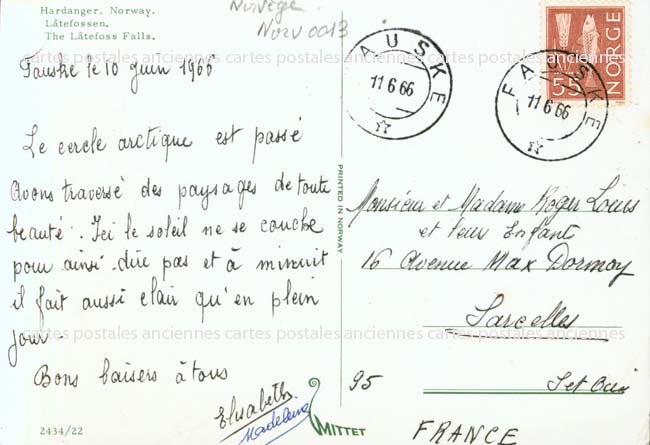 Hardanger. Norway.
Låtefossen.
The Låtefoss Falls.
Norvège
Norv 0013
Fauske le 10 Juin 1966
Le cercle arctique est passé
Avons traversé des paysages de toute
beauté. Ici le soleil ne se couche
pour ainsi dire pas et à minuit
il fait aussi clair qu'en plein
jour
Bons baisers à tous
Elisabeth
Madeleine
2434/22
MITTET
PRINTED IN NORWAY
FAUSKE
11 6 66
FAUSKE
11 6 66
NORGE
55
Monsieur et Madame Roger Louis
et leur Enfant
16 Avenue Max Dormoy
Sarcelles
95
Set Oise
FRANCE
cartes postales anciennes cartes postales anciennes cartes postales anciennes
cartes postales anciennes cartes postales anciennes cartes postales anciennes